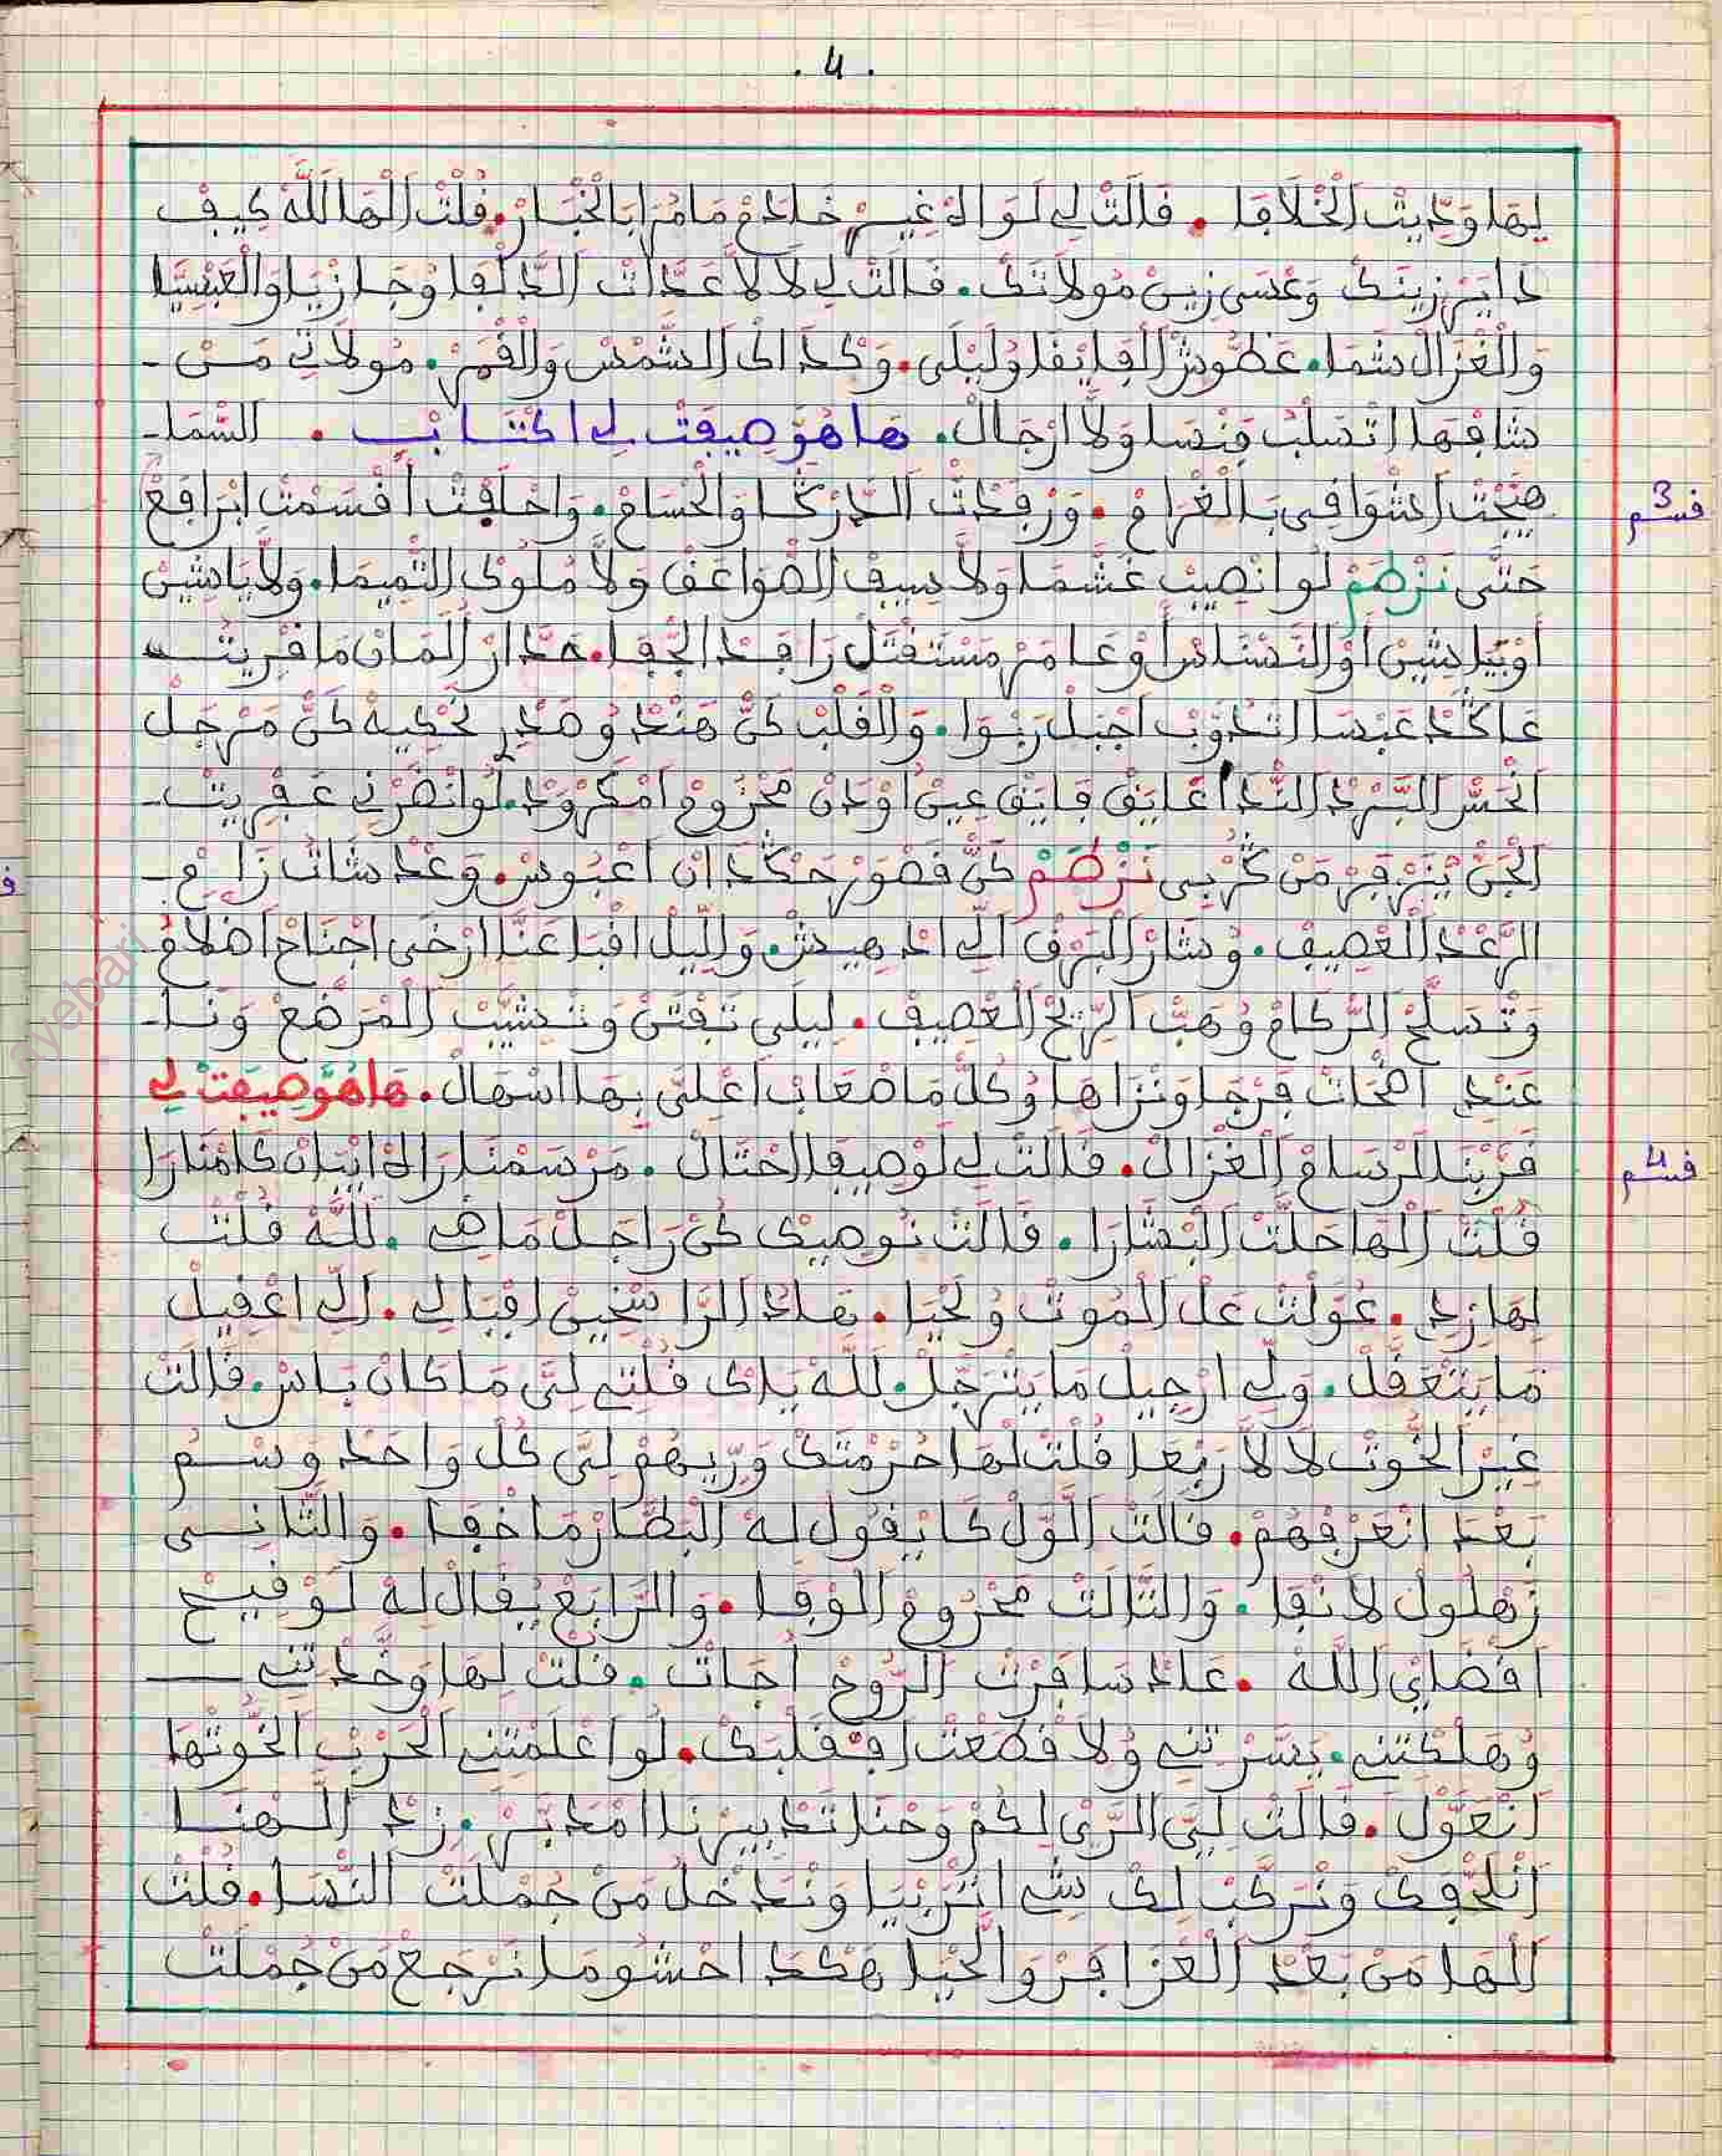 . 4 .
ليها وديت الخلافا . قالت لي لو الاه غير خادم مامرا بالخبار . قلت الها لله كيف
داير زينك وعسى زين مولاتك . قالت لي لا لا عدات الدلفا وجازيا والعبسيا
والغزال شما . عطوش الفايقا وليلى . وكذالك الشمس والقمر . مولاتي من -
شافها اتسلب من نسا ولا ارجال . هاهو صيفت لي اكتاب . السما -
قسم 3
هيجت اشوافي بالغرام . ورفدت الدركا والحسام . واحلفت أقسمت ابرافع
حتى نزطم لو انصيب غشما ولا سيف الصواعق ولا ملوك التميما . ولا ياشين
أو بيا شين أو النسناس أو عامر مستقتل راقد الجفا . حد ار المان ما قريت
عاكد عبسا اتدوب اجبل ربوا . والقلب كن هند وهدر نحكيه كن مرجل
الحس البرد الندا عايق فايق عين أودن محزوم امكرود . لو انضرني عفريت -
الجن يترفر من كربي نزطم كن قصور حكدان اعبوس . وعد شات زام -
الرعد الغصيف . وشار البرق الي ادهيش . والليل اقبا عنا ارخى اجناح اضلام
وتسلح الركام وهب الريح العصيف . ليلى تفتن وتشيب المرضع ونا -
عند اضحات فرجا ونزاها وكل ما صعاب اعلي بها اسهال . هاهو صيفت لي
قسم 4
قربنا لرسام الغزال . قالت لي لوصيفا احتال . مرسمنا راه ابيان كامنارا
قلت الها حلت البشارا . قالت نوصيك كن راجل ماضي . لله قلت
لها زيد . عولت عل الموت ولحيا . هاد الرا سخين اقبالي . الي اغفيل
ما يتغفل . ولي ارجيل ما يترجل . لله ياك قلتي لي ما كان باس . قالت
غير الخوت لا لا ربعا قلت لها حرمتك وريهم لي كل واحد وسم
بعد انعرفهم . قالت الول كا يقول له البطار ما خفا . والتاني
زهلول لا نقا . والتالت محزوم الوفا . والرابع يقال له لوقيح
افضاي الله . عاد سافرت الروح أجات . قلت لها وخدتني
وهلكتني . بسرتني ولا قطعت افقلبك . لو اعلمتني الحرب الخوتها
انعول . قالت لي الري لكم وحنا تدبيرنا امدبر . زد الهنا
انلحفك ونركب لك شي اتربيا وندخل من جملت النسا . قلت
الها من بعد الغزا فر والحيا هكد احشوما نرجع من جملت